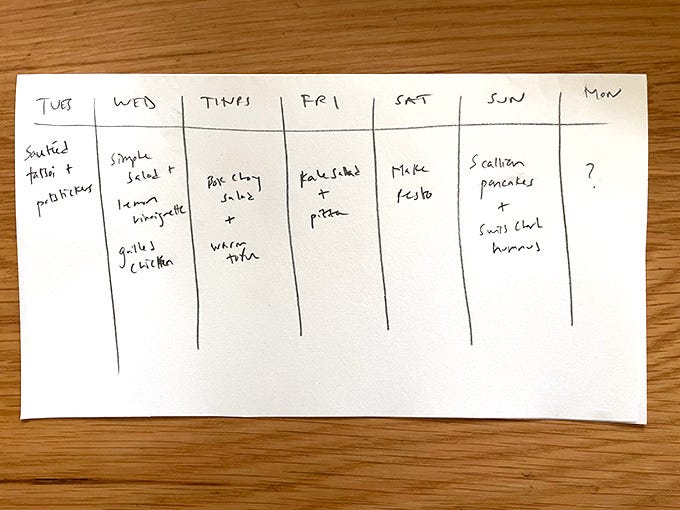 TUES WED THURS FRI SAT SUN MON
Sautéed
tatsoi +
potstickers
Simple
salad +
lemon
vinaigrette
grilled
chicken
Bok choy
salad
+
warm
tofu
kale salad
+
pizza
Make
Pesto
Scallion
pancakes
+
Swiss chard
hummus
?